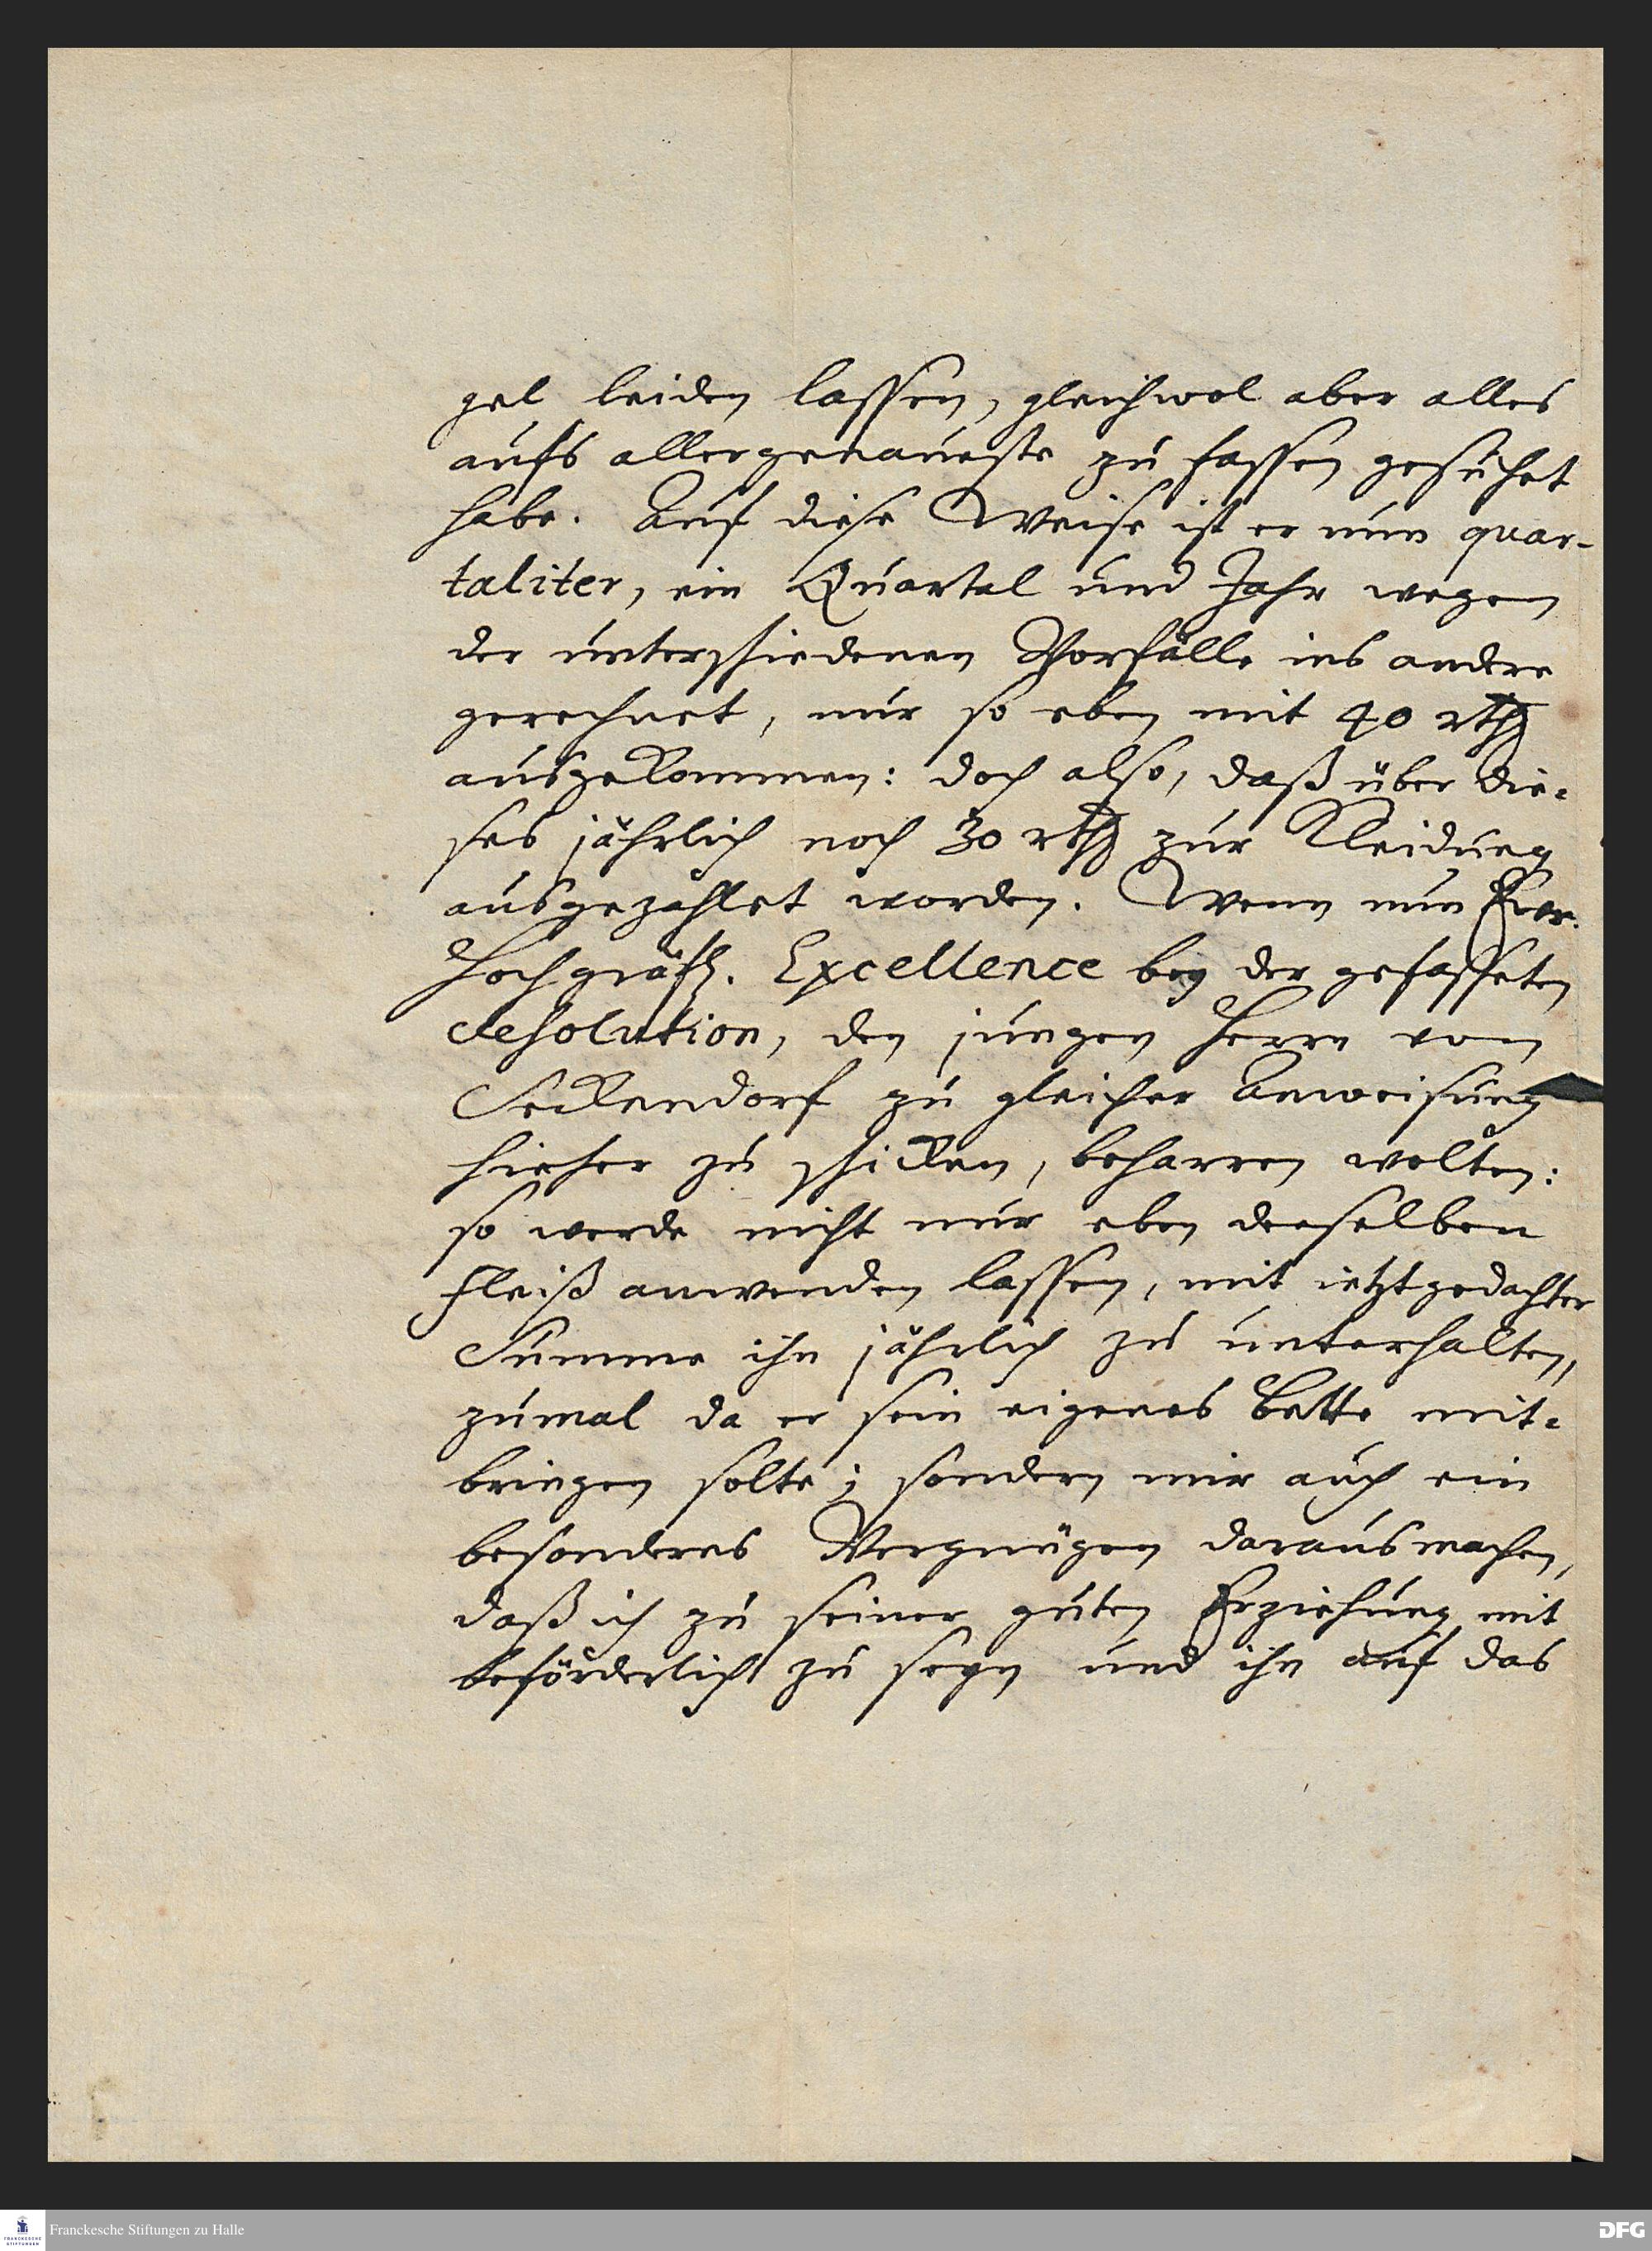 gel leiden lassen, gleichwol aber alles
aufs allergenaueste zu fassen gesuchet
habe. Auf diese Weise ist er nun quar-
taliter, ein Quartal und Jahr wegen
der unterschiedenen Vorfälle ins andere
gerechnet, nur so eben mit 40 rthl
ausgekommen: doch also, daß über die-
ses jährlich noch 30 rthl zur Kleidung
ausgezahlet worden. Wenn nun Euer.
Hochgräfl. Excellence bey der gefasseten
Resolution, den jungen Herrn von
Seckendorf zu gleicher Anweisung
hieher zu schicken, beharren wolten:
so werde nicht nur eben denselben
Fleiß anwenden lassen, mit ietztgedachter
Summe ihn jährlich zu unterhalten,
zumal da er sein eigenes Bette mit-
bringen solte; sondern mir auch ein
besonderes Vergnügen daraus machen,
daß ich zu seiner guten Erziehung mit
beförderlich zu seyn und ihn auf das
Franckesche Stiftungen zu Halle
FRANCKESCHE
STIFTUNGEN
DFG